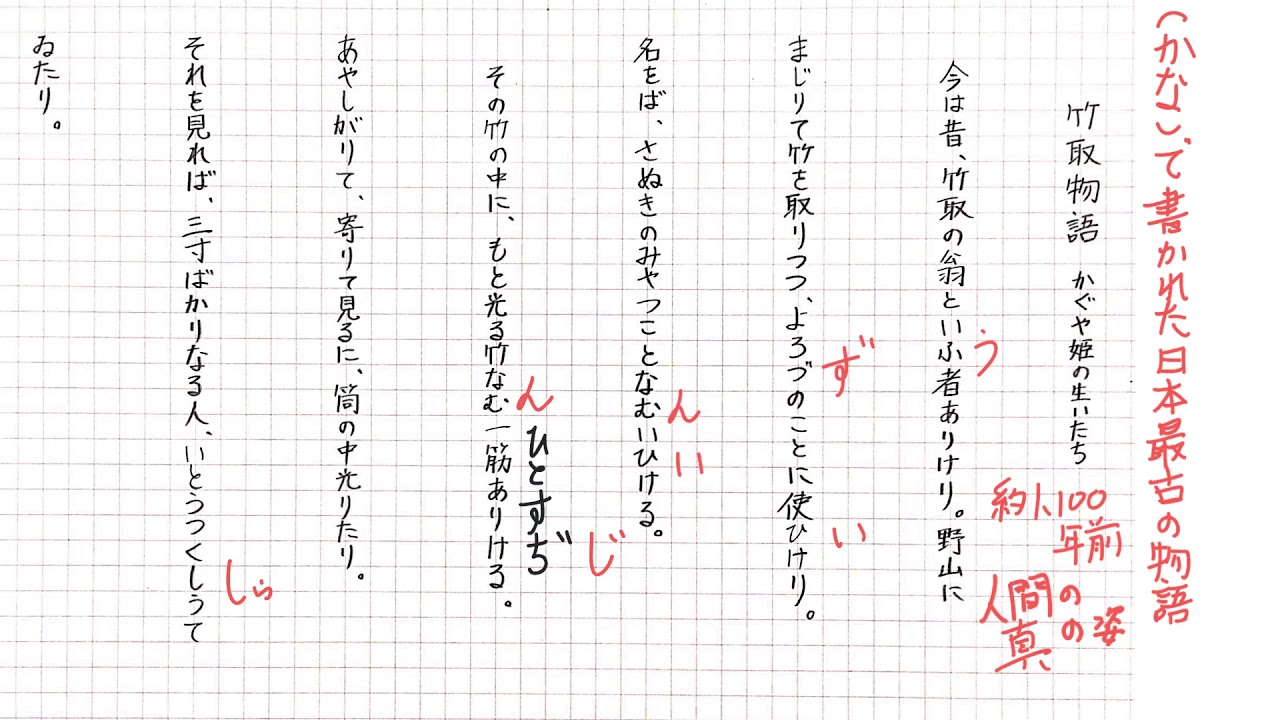 (かな)で書かれた日本最古の物語
竹取物語 かぐや姫の生いたち
約1、100
年前
人間の
真の姿
今は昔、竹取の翁といふ者ありけり。野山に
う
まじりて竹を取りつつ、よろづのことに使ひけり。
ず
い
名をば、さぬきのみやつことなむいひける。
ん
い
その竹の中に、もと光る竹なむ一筋ありける。
ん
ひとすぢ
じ
あやしがりて、寄りて見るに、筒の中光りたり。
それを見れば、三寸ばかりなる人、いとうつくしうて
しゅ
ゐたり。